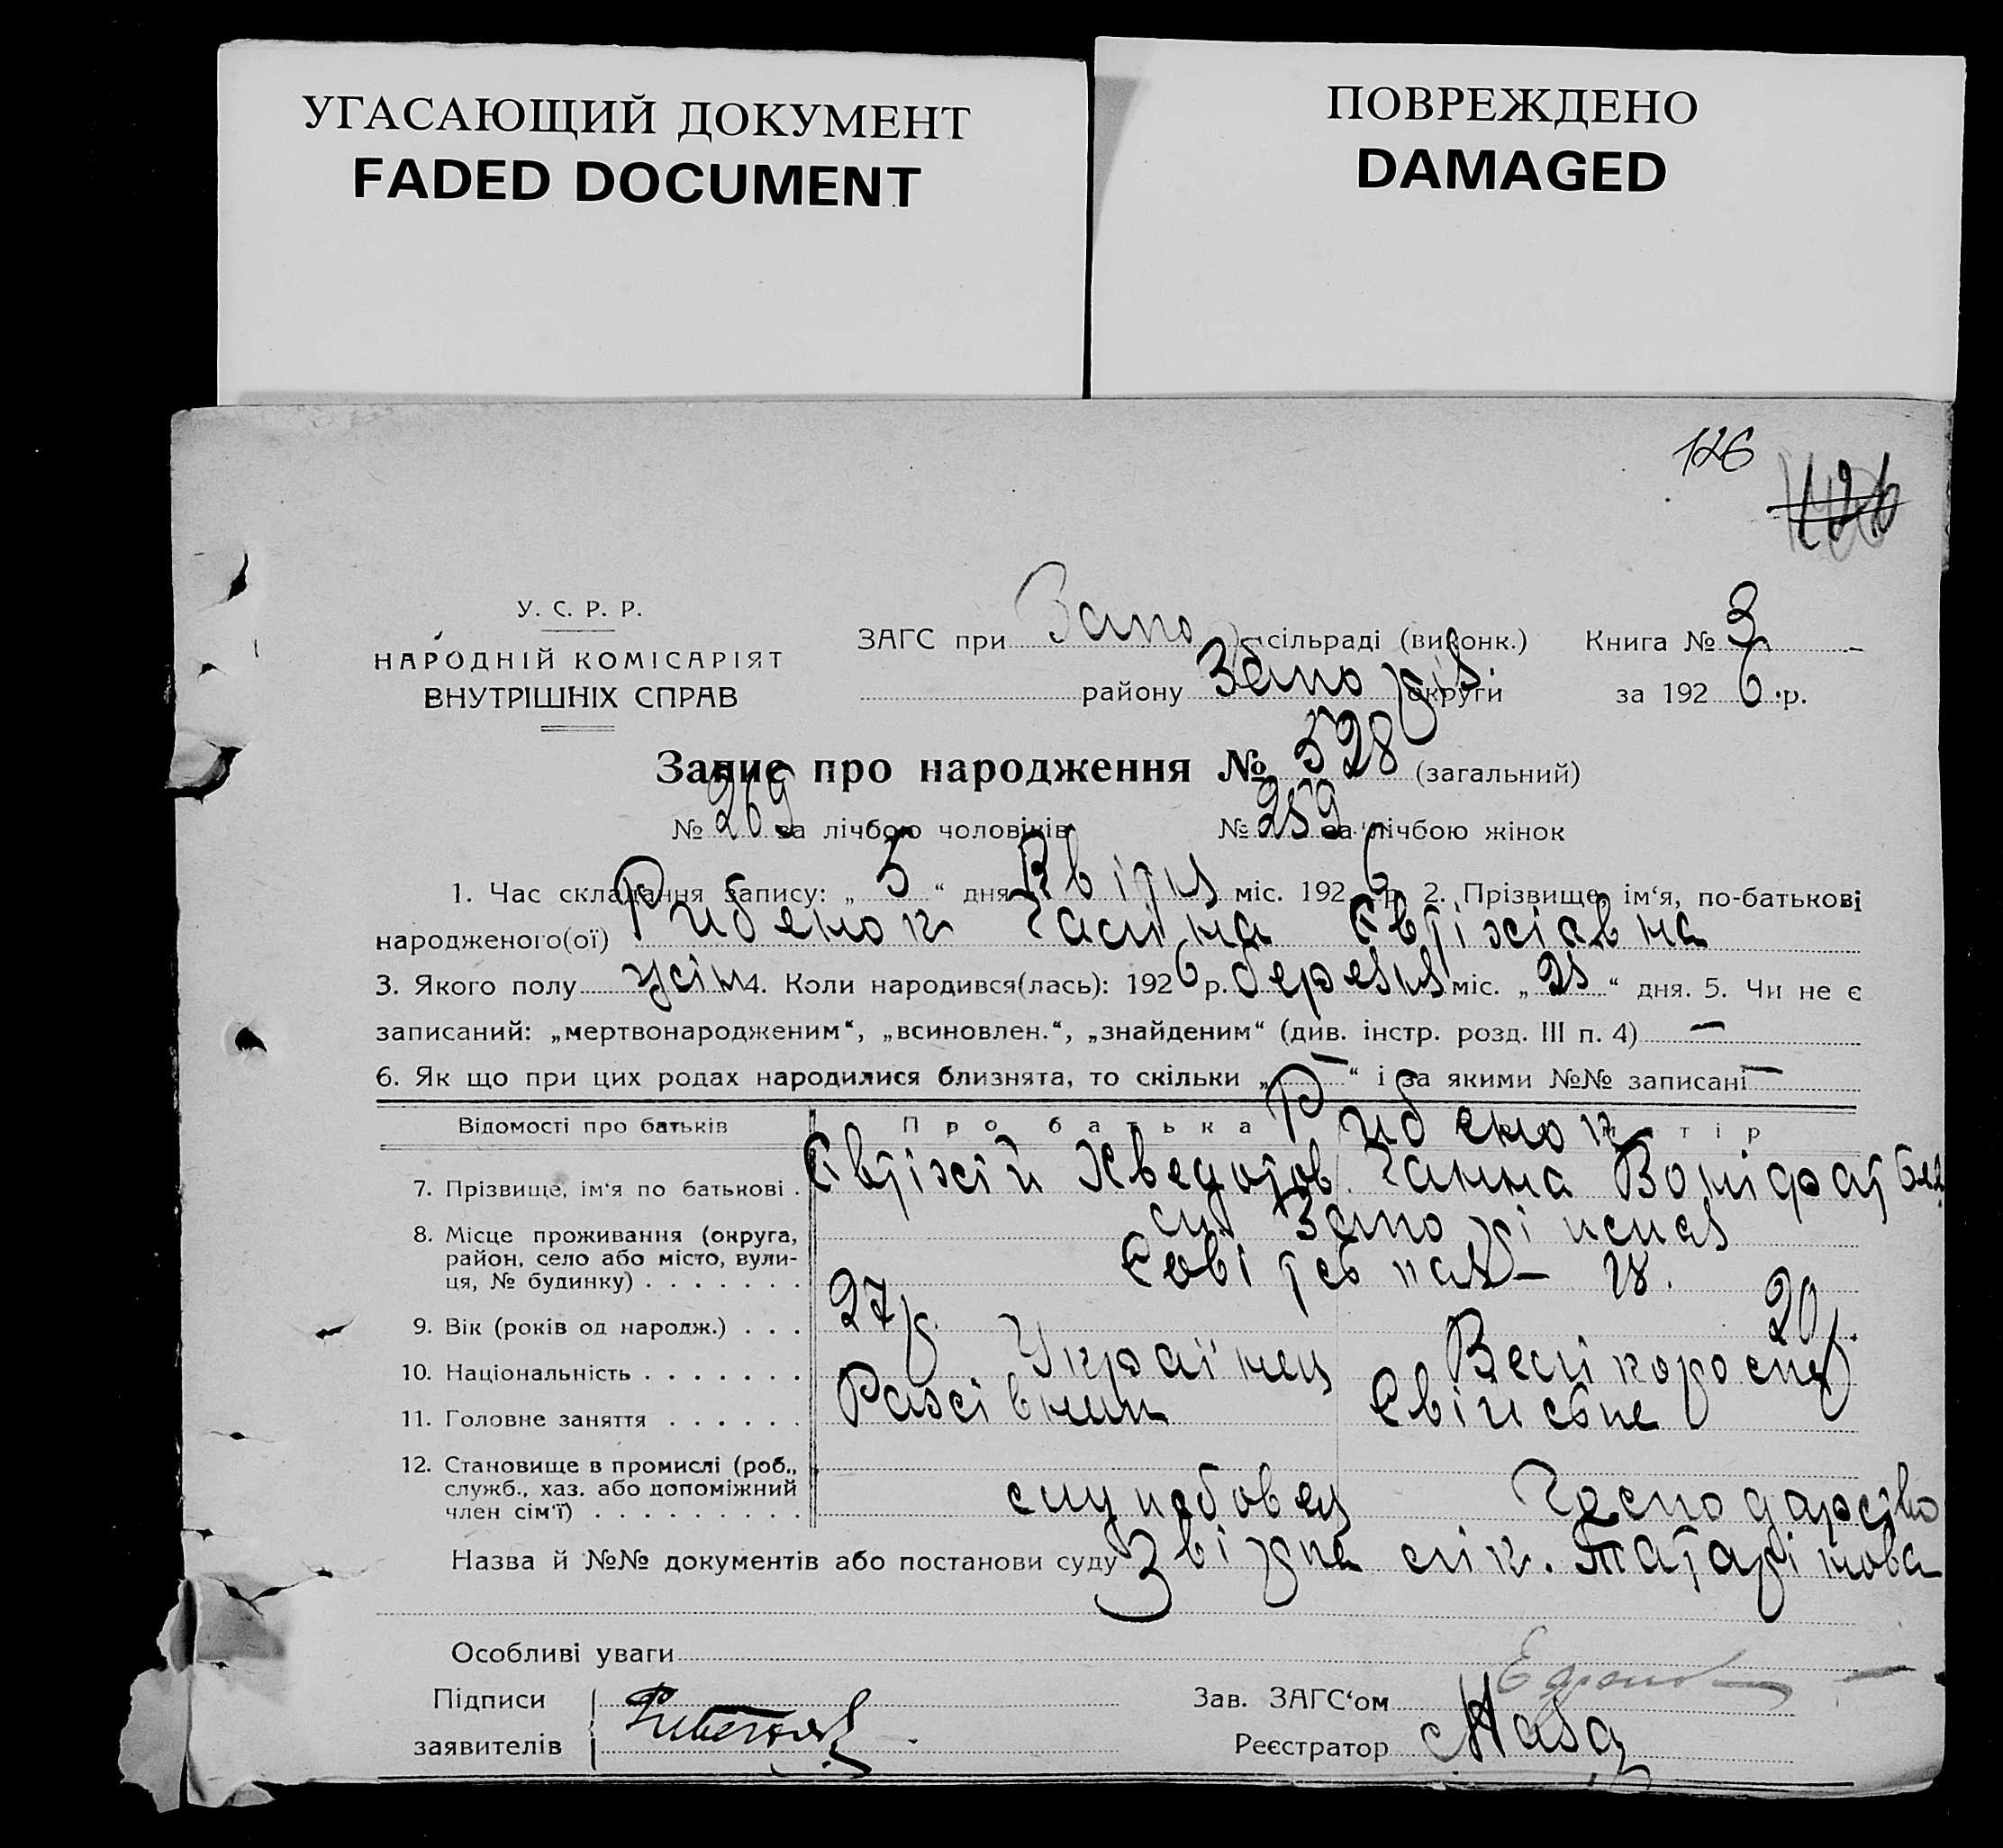 УГАСАЮЩИЙ ДОКУМЕНТ
FADED DOCUMENT
ПОВРЕЖДЕНО
DAMAGED
126
У. С. Р. Р.
НАРОДНІЙ КОМІСАРІЯТ
ВНУТРІШНІХ СПРАВ
ЗАГС при Запо сільраді (виконк.) Книга № 3
району Запоріз. округи за 1926 р.
Запис про народження № 528 (загальний)
№ 269 за лічбою чоловіків № 259 за лічбою жінок
1. Час складання запису: „ 5 “ дня Квітня міс. 1926 р. 2. Прізвище, ім‘я, по-батькові
народженого(ої) Рибенок Галина
3. Якого полу жін 4. Коли народився(лась): 1926 р. березня міс. „ 25 “ дня. 5. Чи не є
записаний: „мертвонародженим“, „всиновлен.“, „знайденим“ (див. інстр. розд. III п. 4) —
6. Як що при цих родах народилися близнята, то скільки „ — “ і за якими №№ записані —
Відомості про батьків Про батька Рибенок матір
7. Прізвище, ім‘я по батькові . Хведотов. Ганна
8. Місце проживання (округа,
район, село або місто, вули-
ця, № будинку) . . . . . . .
9. Вік (років од народж.) . . . 27 р. 20 р.
10. Національність . . . . . . . Українец Велікоросія
11. Головне заняття . . . . . .
12. Становище в промислі (роб.,
служб., хаз. або допоміжний
член сім‘ї) . . . . . . . . . службовец Господарство
Назва й №№ документів або постанови суду Звістка лік. Татарінова
Особливі уваги
Підписи
заявителів
Зав. ЗАГС‘ом
Реєстратор